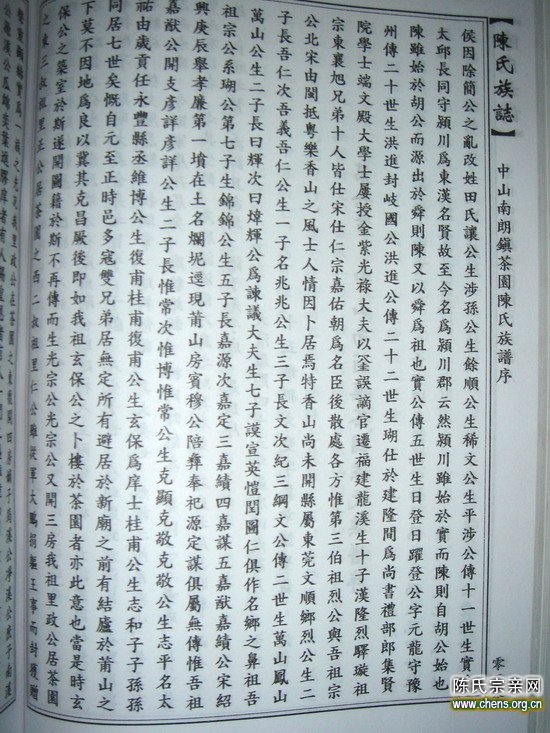 【陳氏族誌】
中山南朗鎮茶園陳氏族譜序
侯因除簡公之亂改姓田氏讓公生涉孫公生餘順公生稀文公生平涉公傳十一世生實
太邱長同守潁川為東漢名賢故至今名為潁川郡云然潁川雖始於實而陳則自胡公始也
陳雖始於胡公而源出於舜則陳又以舜為祖也實公傳五世生日登日躍登公字元龍守豫
州傳二十世生洪進封岐國公洪進公傳二十二世生瑚仕於建隆間為尚書禮部郎集賢
院學士端文殿大學士屢授金紫光祿大夫以筌誤謫官遷福建龍溪生十子漢隆烈驛璇祖
宗東襄旭兄弟十人皆仕宋仕仁宗嘉佑朝為名臣後散處各方惟第三伯祖烈公與吾祖宗
公北宋由閩抵粵樂香山之風士人情因卜居焉特香山尚未開縣屬東莞文順鄉烈公生二
子長吾仁次吾義吾仁公生一子名兆兆公生三子長文次紀三綱文公傳二世生萬山鳳山
萬山公生二子長曰輝次曰煒輝公為諫議大夫生七子謨宣英愷閏圖仁俱作名鄉之鼻祖吾
祖宗公系瑚公第七子生錦錦公生五子長嘉源次嘉定三嘉績四嘉謀五嘉猷嘉績公宋紹
興庚辰舉孝廉第一墳在土名爛坭逕現莆山房賓穆公陪葬奉祀源定謀俱屬無傳惟吾祖
嘉猷公開支彥詳彥詳公生二子長惟常次惟博惟常公生克顯克敬克敬公生志平名太
祐由歲貢任永豐縣丞維博公生復甫桂甫復甫公生玄保為庠士桂甫公生志和子子孫孫
同居七世矣慨自元至正時邑多寇雙兄弟居無定所有避居於新廟之前有結廬於莆山之
下莫不因地為良以冀其克昌厥後即如我祖玄保公之卜樓於茶園者亦此意也當是時玄
保公之築室於斯遂開圖籍於斯不再傳而生光宗公光宗公又開三房我祖里政公居茶園
之東三叔祖里正公居茶園之西二叔祖里仁公雖從軍大鵬捐軀王事而封獲贈
零
陈氏宗亲网
www.chens.org.cn